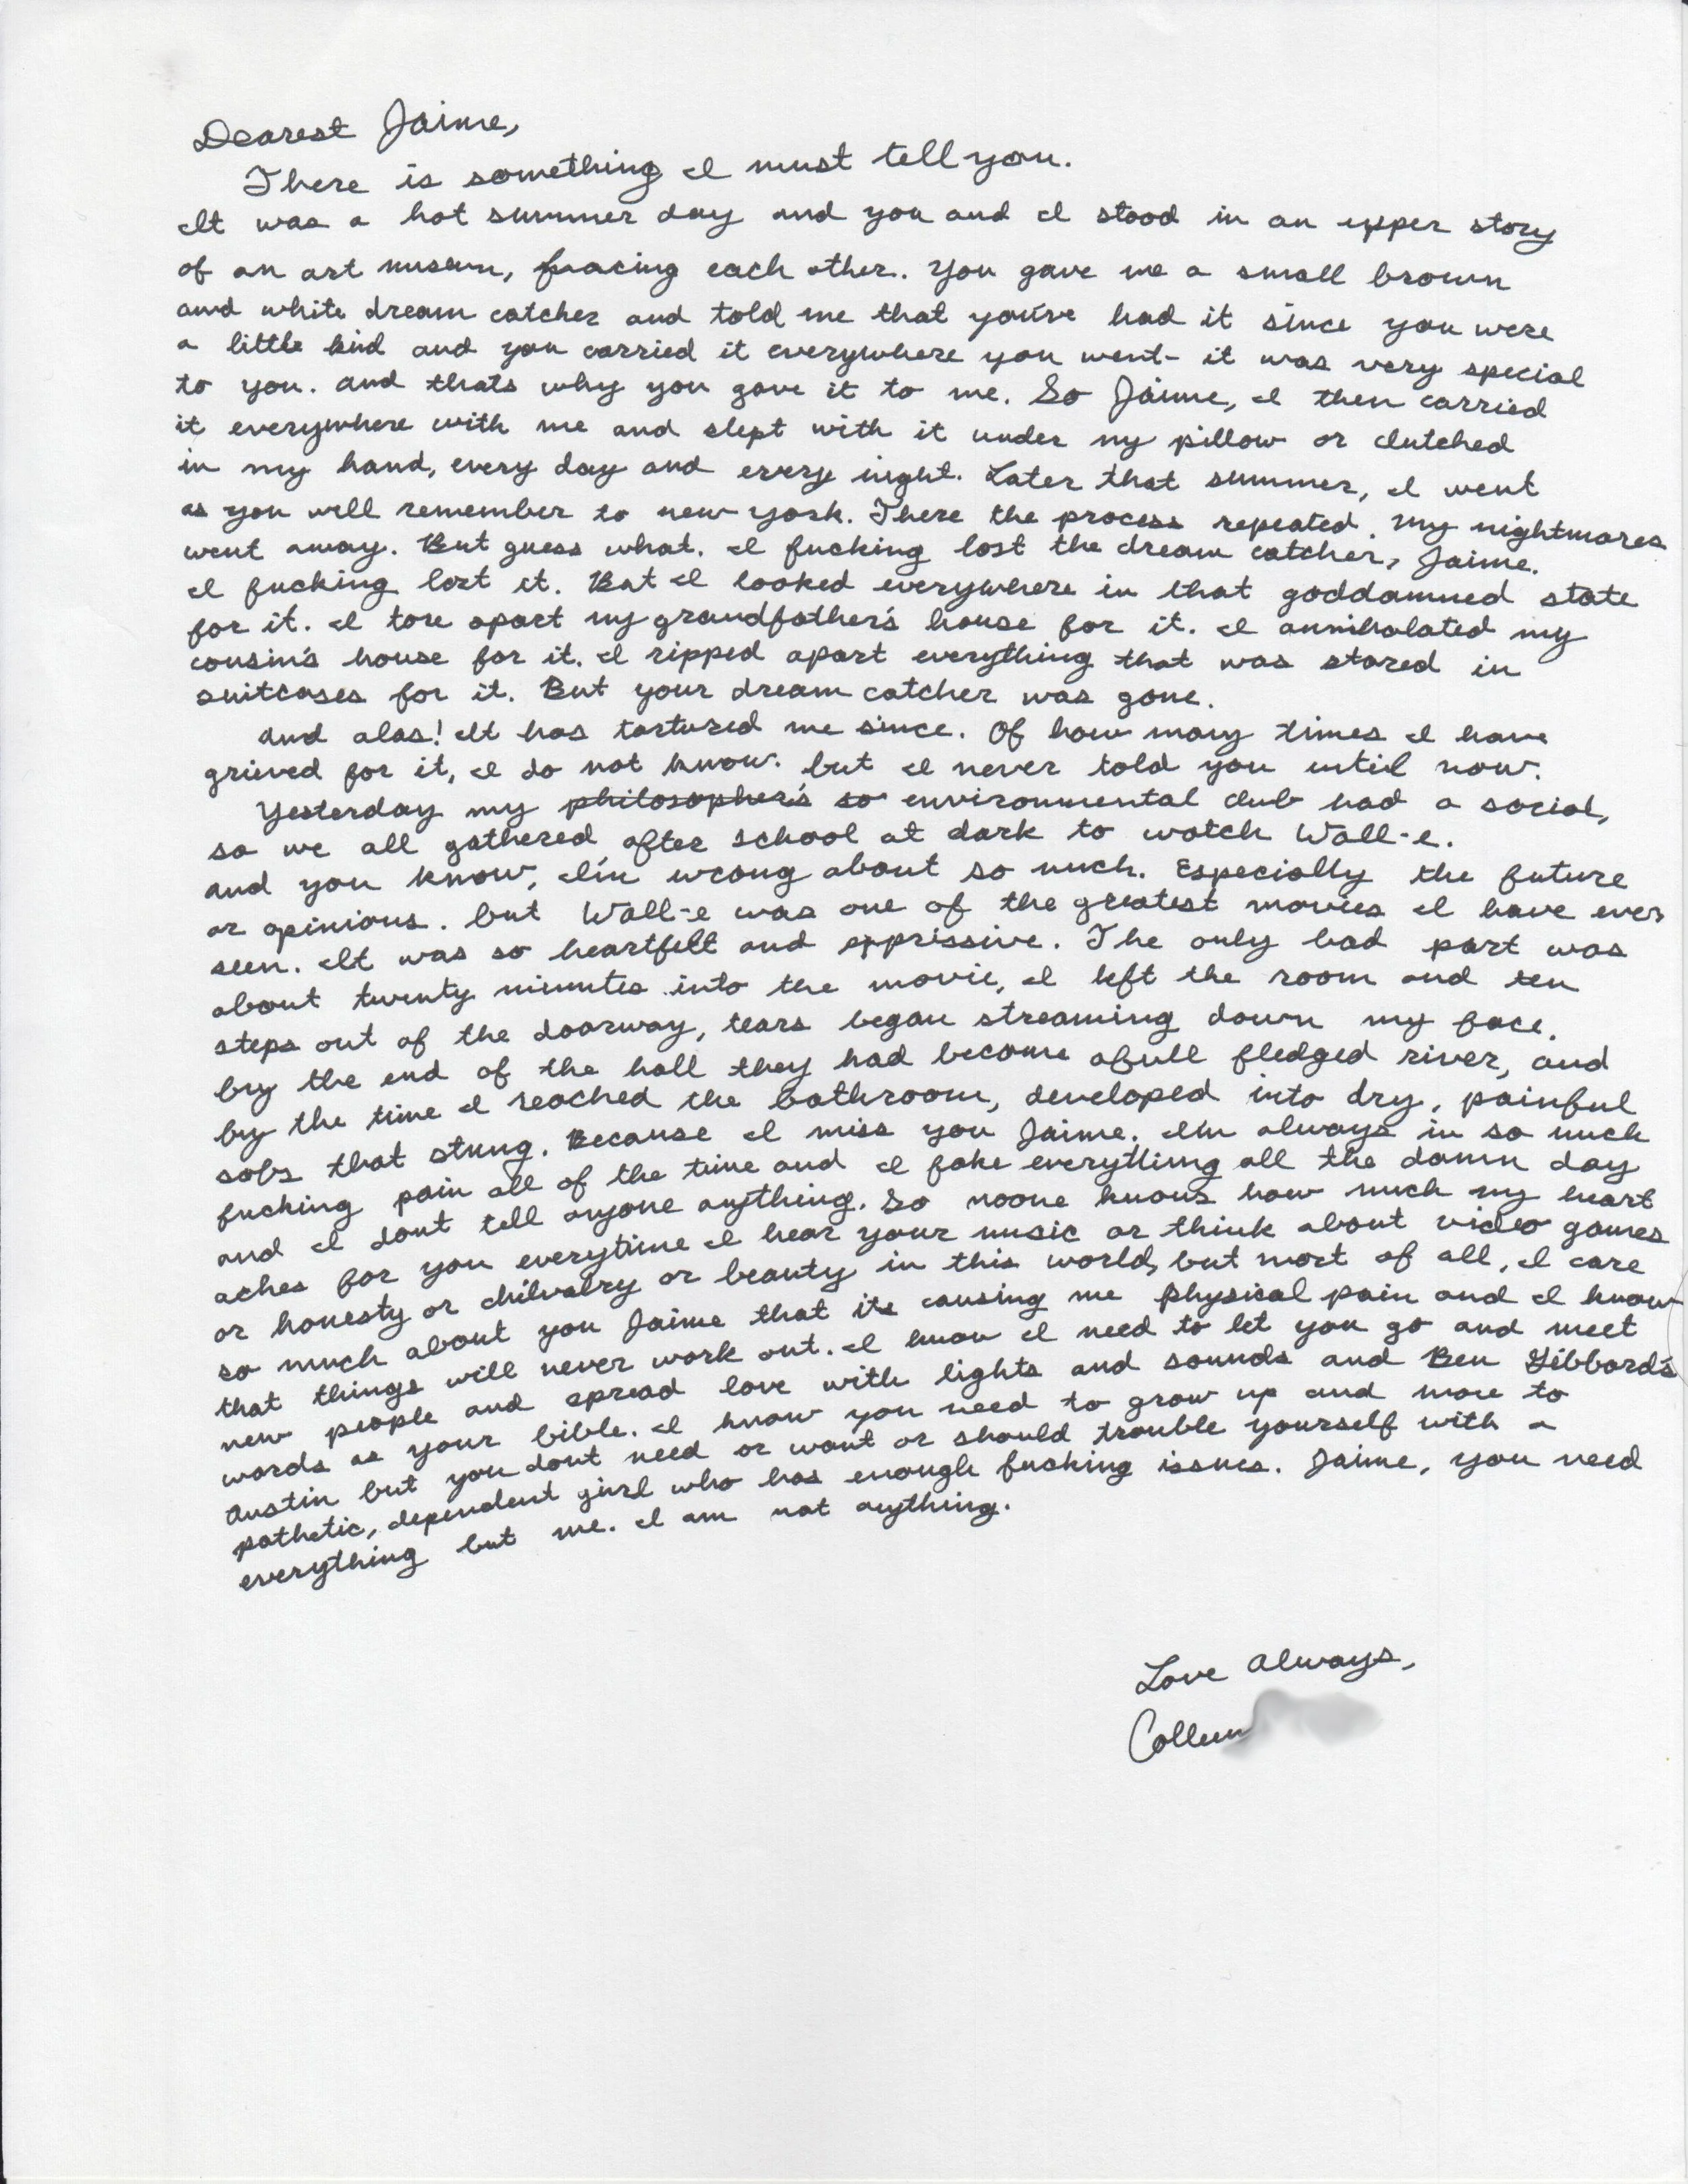 Dearest Jaime,
There is something I must tell you.
It was a hot summer day and you and I stood in an upper story
of an art museum, facing each other. You gave me a small brown
and white dream catcher and told me that you've had it since you were
a little kid and you carried it everywhere you went- it was very special
to you. and thats why you gave it to me. So Jaime, I then carried
it everywhere with me and slept with it under my pillow or clutched
in my hand, every day and every night. Later that summer, I went
as you will remember to new york. There the process repeated. My nightmares
went away. But guess what. I fucking lost the dream catcher, Jaime.
I fucking lost it. But I looked everywhere in that goddamned state
for it. I tore apart my grandfather's house for it. I annihalated my
cousin's house for it. I ripped apart everything that was stored in
suitcases for it. But your dream catcher was gone.
and alas! It has tortured me since. Of how many times I have
grieved for it, I do not know. but I never told you until now.
Yesterday my philosopher's so environmental club had a social,
so we all gathered after school at dark to watch Wall-e.
and you know, I'm wrong about so much. Especially the future
or opinions. but Wall-e was one of the greatest movies I have ever
seen. It was so heartfelt and expressive. The only bad part was
about twenty minutes into the movie, I left the room and ten
steps out of the doorway, tears began streaming down my face.
by the end of the hall they had become a full fledged river, and
by the time I reached the bathroom, developed into dry, painful
sobs that stung. Because I miss you Jaime. Im always in so much
fucking pain all of the time and I fake everything all the damn day
and I dont tell anyone anything. So noone knows how much my heart
aches for you everytime I hear your music or think about video games
or honesty or chilvalry or beauty in this world, but most of all, I care
so much about you Jaime that its causing me physical pain and I know
that things will never work out. I know I need to let you go and meet
new people and spread love with lights and sounds and Ben Gibbard's
words as your bible. I know you need to grow up and move to
Austin but you dont need or want or should trouble yourself with a
pathetic, dependent girl who has enough fucking issues. Jaime, you need
everything but me. I am not anything.
Love always,
Colleen